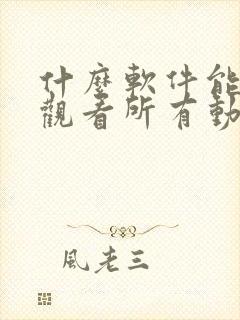 什麼軟件能
觀看所有動
風老三